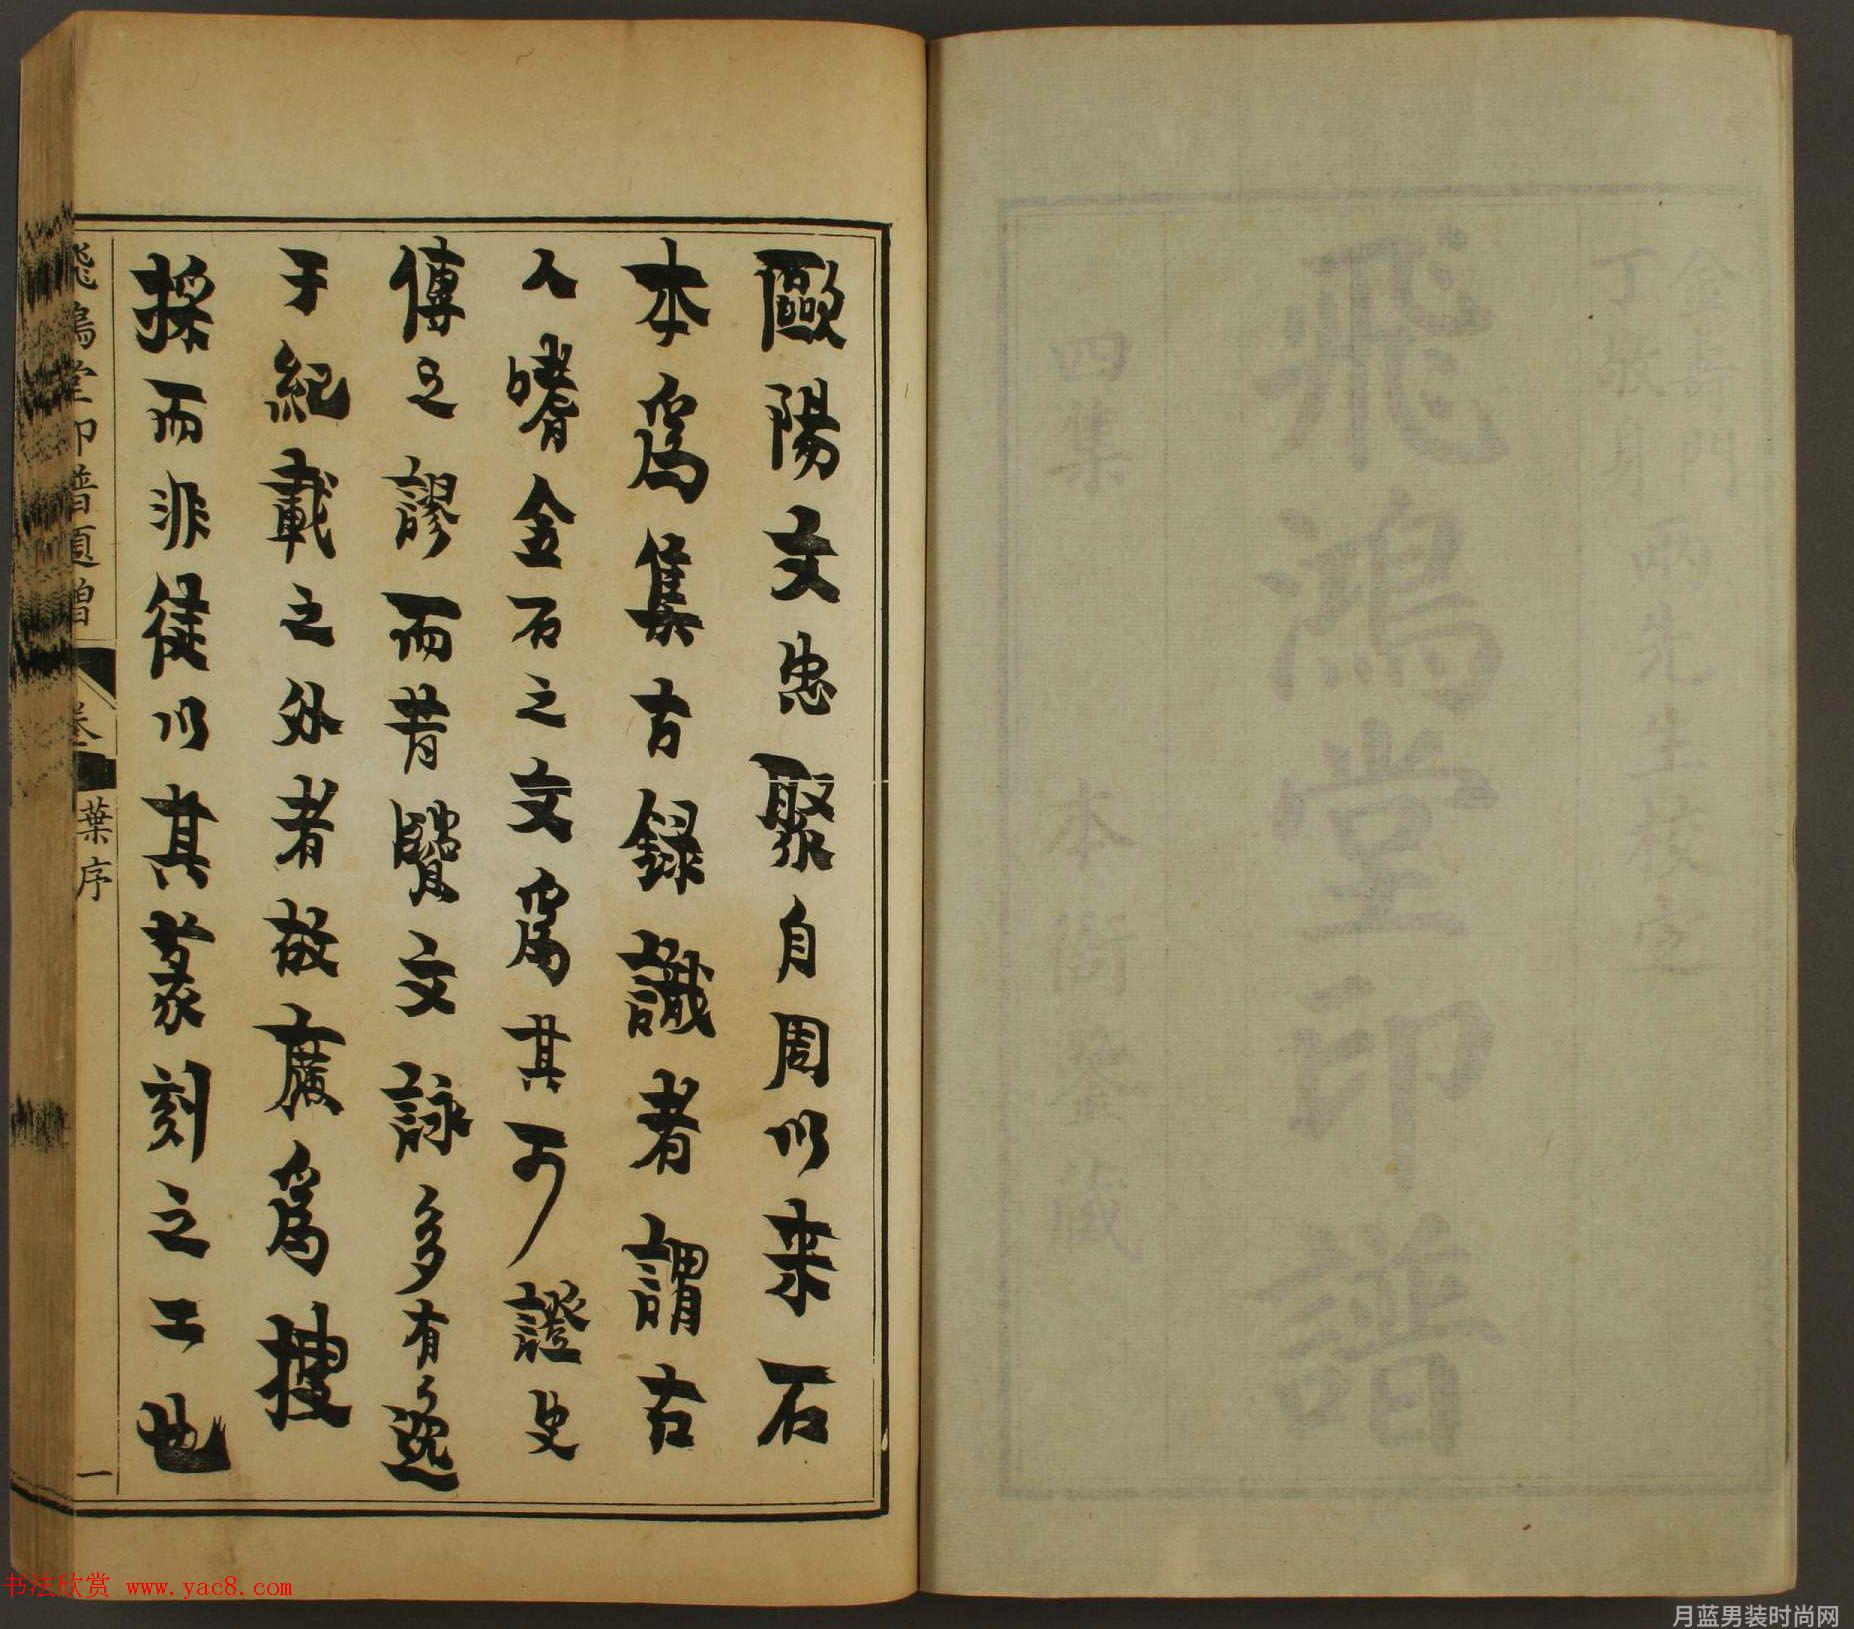 金壽門
丁敬身
兩先生校定
飛鴻堂印譜
四集 本衙藏
歐陽文忠聚自周以来石
本爲集古錄識者謂古
人嗜金石之文爲其可證史
傳之謬而昔賢文詠多有逸
于紀載之外者故廣爲搜
採而非徒以其篆刻之工也
飛鴻堂印譜 卷 葉序 一
书法欣赏 www.yac8.com
月蓝男装时尚网